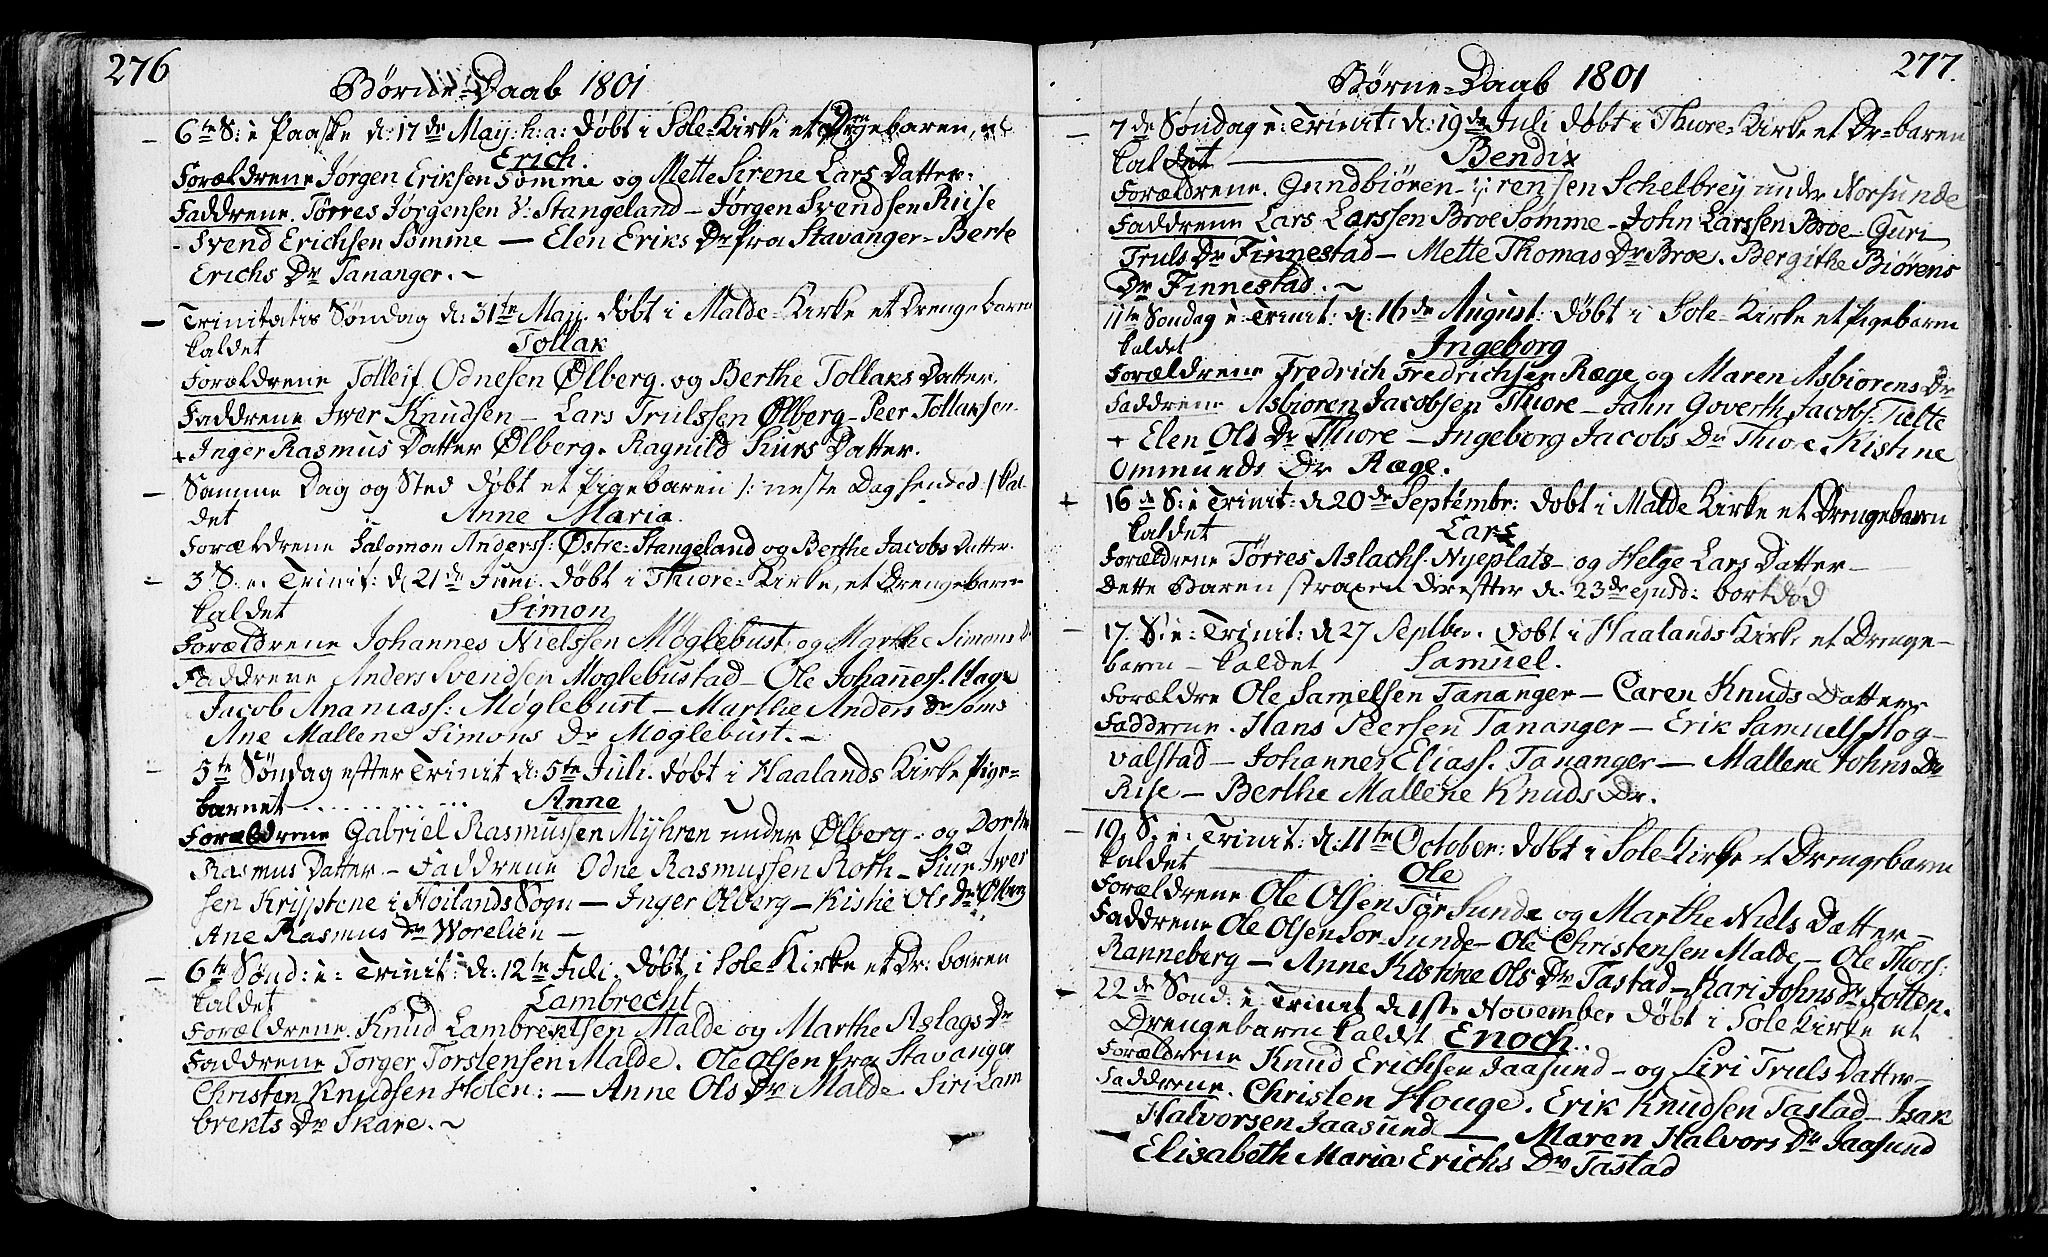 276
Børne-Daab 1801
6te S: e Paaske d: 17de Maij: h: a: døbt i Sole-Kirke et Drengebaren,
Erich.
Forældrene Jørgen Eriksen Sømme og Mette Sirene Lars Datter:
Faddrene. Tørres Jørgensen V: Stangeland - Jørgen Svendsen Riise
- Svend Erichsen Sømme — Elen Eriks Dr fra Stavanger - Berte
Erichs Dr Tananger. ~
Trinitatis Søndag d: 31te Maij. døbt i Malde-Kirke et Drengebaren
kaldet Tollak
Forældrene Tolleif Odnesen Ølberg. og Berthe Tollaks Datter.
Faddrene Iver Knudsen - Lars Trulssen Ølberg - Peer Tollaksen
Inger Rasmus Datter Ølberg. Ragnild Siurs Datter.
Samme Dag og Sted døbt et Pigebaren /: neste Dag hendød / kal-
det Anne Maria.
Forældrene Salomon Anderss: Østre-Stangeland og Berthe Jacobs Datter.
3 S. e. Trinit: d 21de Juni. døbt i Thiore-Kirke, et Drengebaren
kaldet Simon
Forældrene Johannes Nielssen Møglebust, og Marthe Simons Dr
Faddrene Anders Svendsen Moglebustad - Ole Johaness. Hage
Jacob Ananiass: Møglebust - Marthe Anders Dr Søms
Ane Mallene Simons Dr Moglebust. ~
5te Søndag efter Trinit d: 5te Juli. døbt i Haalands Kirke Pige-
barnet .......... Anne
Forældrene Gabriel Rasmussen Myhren under Ølberg - og Dorthe
Rasmus Datter - Faddrene Odne Rasmussen Roth - Siur Iver
sen Kryptene i Høilands Sogn - Inger Ølberg - Kistie Ols Dr Ølberg
Ane Rasmus Dr Worelien -
6te Sønd: e: Trinit: d: 12te Juli. døbt i Sole-Kirke et Dr: baren
kaldet Lambrecht
Forældrene. Knud Lambrektsen Malde og Marthe Aslags Dr
Faddrene Torger Torstensen Malde. Ole Olsen fra Stavanger
Christen Knudsen Holen: — Anne Ols Dr Malde Siri Lam
brekts Dr Skare. ~
277.
Børne-Daab 1801
7de Søndag e: Trinit: d: 19de Juli døbt i Thiore-Kirke et Dr-baren
kaldet — Bendix
Forældrene. Gundbiøren Sørensen Schelbrey under Norsunde
Faddrene Lars Larssen Broe Sømme - John Larssen Broe - Guri
Truls Dr Finnestad - Mette Thomas Dr Broe. Bergithe Biørens
Dr Finnestad. ~
11te Søndag e: Trinit: d: 16de August: døbt i Sole-Kirke et Pigebarn
kaldet Ingeborg
Forældrene Fredrich Fredrichsen Ræge og Maren Asbiørens Dr
Faddrene Asbioren Jacobsen Thiore - Jahn Goverth Jacobs: Tielte
+ Elen Ols Dr Thiore - Ingeborg Jacobs Dr Thiore. Kistine
Ommunds Dr Ræge.
+ 16de S: e Trinit: d 20de Septembr: døbt i Malde Kirke et Drengebarn
kaldet Lars
Forældrene Tørres Aslachs. Nyeplats - og Helge Lars Datter -
Dette Baren straxen direfter d. 23de ejusd: bortdød
17. S: e: Trinit: d 27 Septbr. døbt i Haalands Kirke et Drenge-
baren - kaldet Samuel.
Forældre Ole Samelsen Tananger - Caren Knuds Datter
Faddrene. Hans Peersen Tananger - Erik Samuels. Hog-
valstad - Johannes Eliass. Tananger - Mallene Johns Dr
Rise - Berthe Mallene Knuds Dr.
19. S: e: Trinit: d: 11te October: døbt i Sole-Kirke et Drengebarn
kaldet Ole
Forældrene Ole Olsen Sør Sunde og Marthe Niels Datter -
Faddrene Ole Olsen Sør-Sunde - Ole Christensen Malde - Ole Thors:
Ranneberg - Anne Kistine Ols Dr Tastad - Kari Johns Dr Jotten.
22de Sønd: e: Trinit d 1ste November døbt i Sole Kirke et
Drengebaren kaldet Enoch.
Forældrene Knud Erichsen Jaasund - og Siri Truls Datter -
Faddrene. Christen Houge. Erik Knudsen Tastad - Isak
Halvorsen Jaasund — Maren Halvors Dr Jaasund
Elisabeth Maria Erichs Dr Tastad